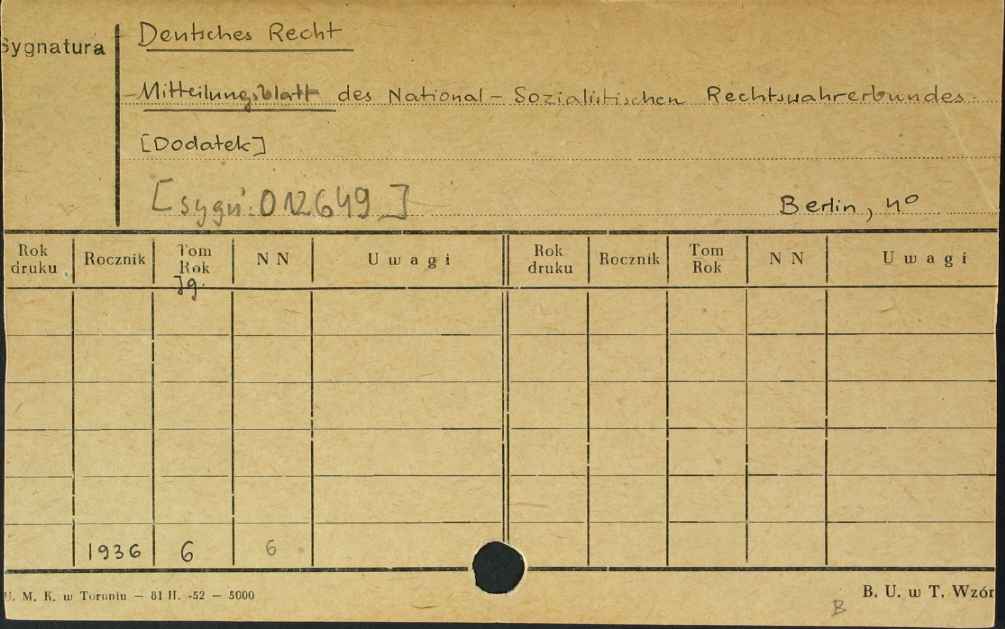 Sygnatura
Deutsches Recht
Mitteilungsblatt des National-Sozialistischen Rechtswahrerbundes.
[Dodatek]
[sygn: 012649]
Berlin, 4°
Rok druku Rocznik Tom Rok N N Uwagi Rok druku Rocznik Tom Rok N N Uwagi
Jg.
1936 6 6
U. M. K. w Toruniu — 81 H. -52 — 5000
B. U. w T. Wzór
B